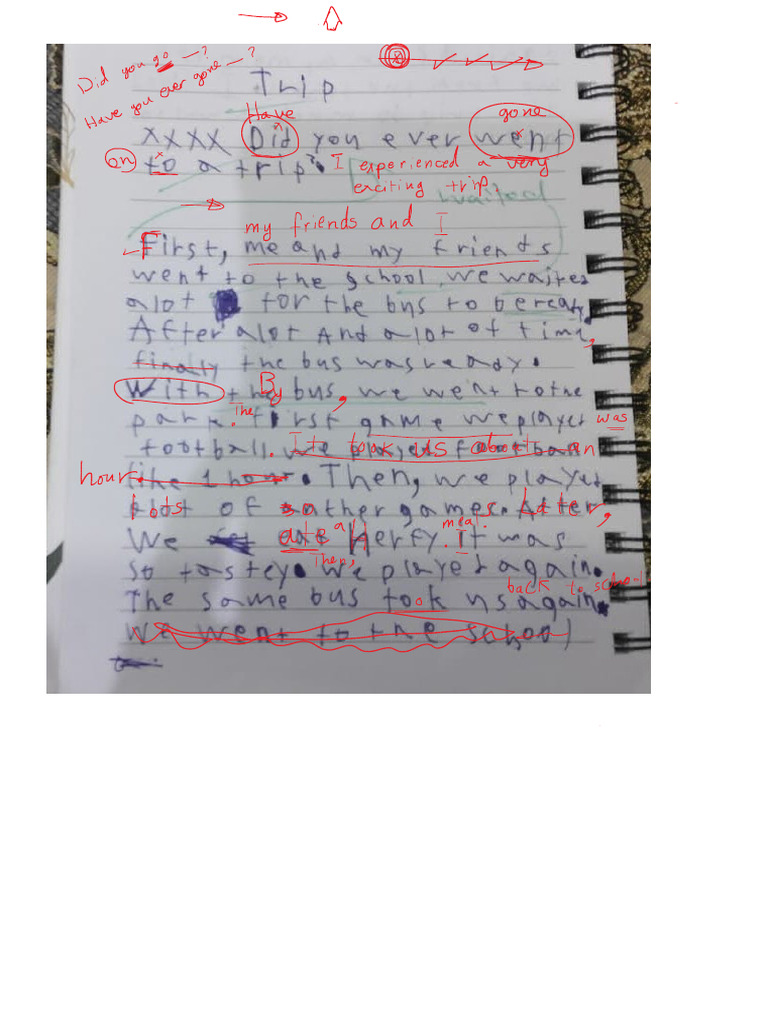 Did you go —?
Have you ever gone —?
Trip
Have gone
xxxx Did you ever went
on to a trip? I experienced a very
exciting trip.
waited
my friends and I
First, me and my friends
went to the school. we waites
alot for the bus to be ready
After alot and alot of time,
finally the bus was ready.
With the By bus, we went to the
park. The first game we played was
football. It took us about an
hour like 1 hour. Then, we played
lots of other games. After,
We ate a Herfy meal. It was
so tastey. Then, we played again.
The same bus took us again. back to school
We went to the school